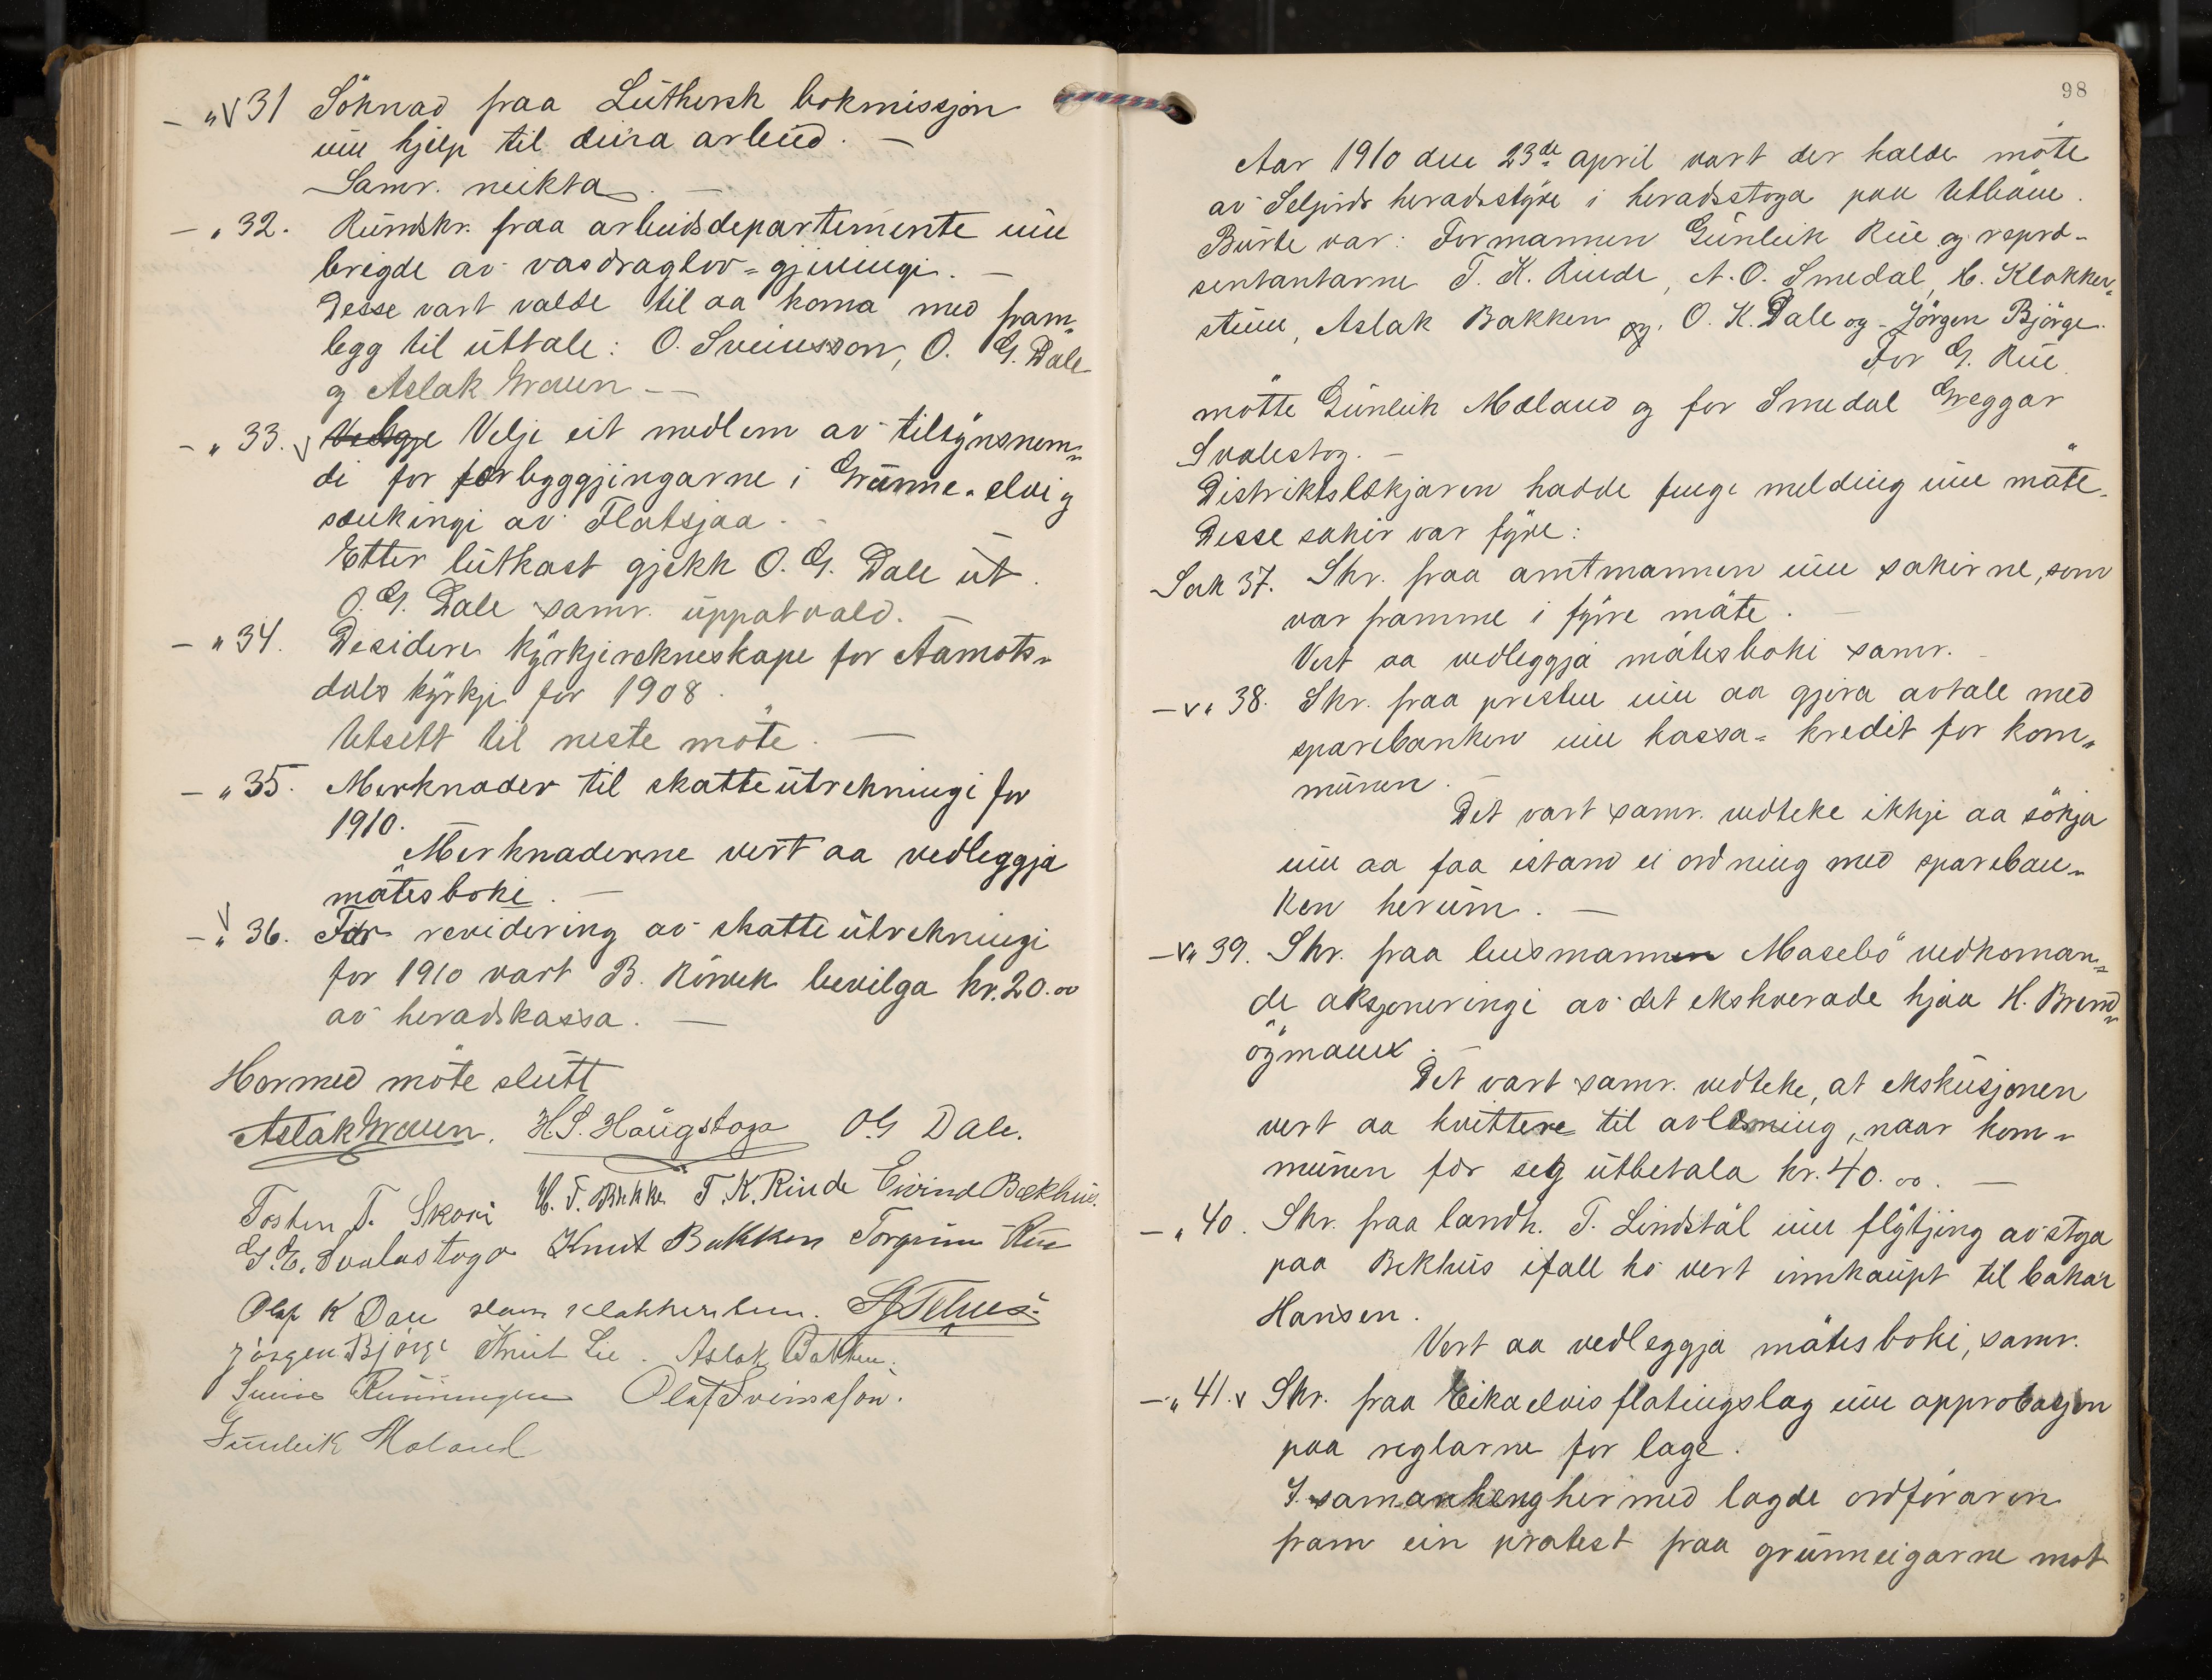 - " V 31 Söknad fraa Luthersk bokmissjon
um hjelp til deira arbeid. -
Samr. neikta. -
- " 32. Rundskr. fraa arbeidsdepartemente um
brigde av vasdraglov-gjevingi. -
Desse vart valde til aa koma med fram-
legg til uttale: O. Sveinsson, O. G. Dale
og Aslak Graven -
- " 33. V Velje eit medlem av tilsynsnem-
di for forbygggjingarne i Grunne-elvi og
senkingi av Flatsjaa. -
Etter lutkast gjekk O. G. Dale ut.
O. G. Dale samr. uppatvald.
- " 34. Desidere kyrkjerekneskape for Aamots-
dals kyrkje for 1908.
Utsett til neste möte. -
- " 35. Merknader til skatteutrekningi for
1910.
Merknaderne vert aa vedleggja
mötesboki. -
- V " 36. For revidering av skatteutrekningi
for 1910 vart B. Rörvik bevilga kr. 20.00
av heradskassa. -
Hermed möte slutt
Aslak Graven. H. S. Haugstoga O G Dale.
Tosten T. Skori H. T. Bekke T. K. Rinde Eivind Bækhus.
G. E. Svalastoga Knut Bakken Torgrim Rue
Olaf K Dale Klokkerstuen.
Jörgen Björge Knut Lie. Aslak Bakken.
Svein Runningen Olaf Sveinsson.
Gunleik Mæland
98
Aar 1910 den 23de april vart der halde möte
av Seljords heradsstyre i heradsstoga paa Utböen.
Burte var: Formannen Gunleik Rue og repræ-
sentantarne T. K. Rinde, A. O. Smedal, H. Klokker-
stuen, Aslak Bakken og O. K. Dale og Jörgen Björge.
For G. Rue
mötte Gunleik Mæland og for Smedal Greggar
Svalestog. -
Distriktslækjaren hadde fenge melding um möte.
Desse sakir var fyre:
Sak 37. Skr. fraa amtmannen um sakirne, som
var framme i fyrre möte. -
Vert aa vedleggja mötesboki samr. -
- V " 38. Skr. fraa presten um aa gjera avtale med
sparebanken um kassa-kredit for kom-
munen. -
Det vart samr. vedteke ikkje aa sökja
um aa faa istand ei ordning med spareban-
ken herum. -
- V " 39. Skr. fraa lensmannen Masebö vedkoman-
de aksjoneringi av det ekskverade hjaa H. Brend-
öymauex. -
Det vart samr. vedteke, at ekskusjonen
vert aa kvittere til avlæsning, naar kom-
munen fær seg utbetala kr. 40.00. -
- " 40. Skr. fraa landh. T. Lindstöl um flytjing av stoga
paa Bekhus ifall ho vert innkaupt til bakar
Hansen.
Vert aa vedleggja mötesboki, samr.
- " 41. V Skr. fraa Eikaelvis flötingslag um approbasjon
paa reglarne for lage.
I samanheng hermed lagde ordföraren
fram ein protest fraa grunneigarne mot